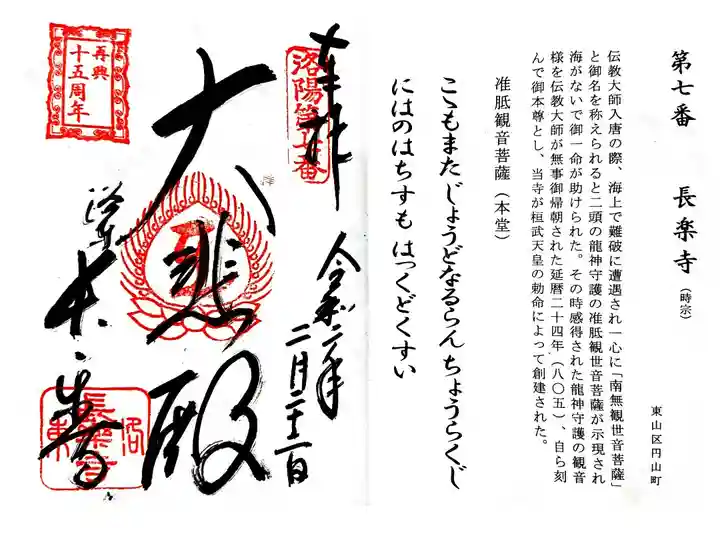 第七番　長楽寺（時宗）
東山区円山町
伝教大師入唐の際、海上で難破に遭遇され一心に「南無観世音菩薩」
と御名を称えられると二頭の龍神守護の准胝観世音菩薩が示現され
海がないで御一命が助けられた。その時感得された龍神守護の観音
様を伝教大師が無事御帰朝された延暦二十四年（八〇五）、自ら刻
んで御本尊とし、当寺が桓武天皇の勅命によって創建された。
准胝観音菩薩（本堂）
こゝもまた じょうどなるらん ちょうらくじ
にはのはちすも はっくどくすい
奉拝
洛陽第七番
令和二年
二月二十二日
大悲殿
再興
十五周年
長楽寺